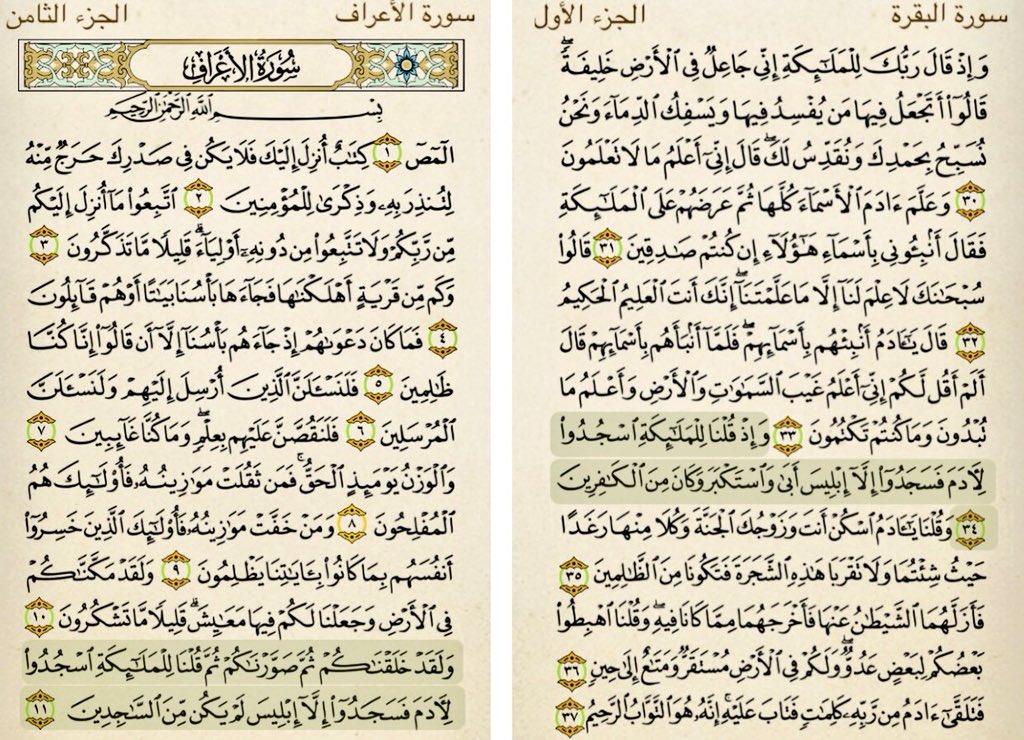 سورة البقرة
الجزء الأول
وَإِذْ قَالَ رَبُّكَ لِلْمَلَٰٓئِكَةِ إِنِّى جَاعِلٌ فِى ٱلْأَرْضِ خَلِيفَةً ۖ
قَالُوٓا۟ أَتَجْعَلُ فِيهَا مَن يُفْسِدُ فِيهَا وَيَسْفِكُ ٱلدِّمَآءَ وَنَحْنُ
نُسَبِّحُ بِحَمْدِكَ وَنُقَدِّسُ لَكَ ۖ قَالَ إِنِّىٓ أَعْلَمُ مَا لَا تَعْلَمُونَ
٣٠ وَعَلَّمَ ءَادَمَ ٱلْأَسْمَآءَ كُلَّهَا ثُمَّ عَرَضَهُمْ عَلَى ٱلْمَلَٰٓئِكَةِ
فَقَالَ أَنۢبِـُٔونِى بِأَسْمَآءِ هَٰٓؤُلَآءِ إِن كُنتُمْ صَٰدِقِينَ ٣١ قَالُوا۟
سُبْحَٰنَكَ لَا عِلْمَ لَنَآ إِلَّا مَا عَلَّمْتَنَآ ۖ إِنَّكَ أَنتَ ٱلْعَلِيمُ ٱلْحَكِيمُ
٣٢ قَالَ يَٰٓـَٔادَمُ أَنۢبِئْهُم بِأَسْمَآئِهِمْ ۖ فَلَمَّآ أَنۢبَأَهُم بِأَسْمَآئِهِمْ قَالَ
أَلَمْ أَقُل لَّكُمْ إِنِّىٓ أَعْلَمُ غَيْبَ ٱلسَّمَٰوَٰتِ وَٱلْأَرْضِ وَأَعْلَمُ مَا
تُبْدُونَ وَمَا كُنتُمْ تَكْتُمُونَ ٣٣ وَإِذْ قُلْنَا لِلْمَلَٰٓئِكَةِ ٱسْجُدُوا۟
لِـَٔادَمَ فَسَجَدُوٓا۟ إِلَّآ إِبْلِيسَ أَبَىٰ وَٱسْتَكْبَرَ وَكَانَ مِنَ ٱلْكَٰفِرِينَ
٣٤ وَقُلْنَا يَٰٓـَٔادَمُ ٱسْكُنْ أَنتَ وَزَوْجُكَ ٱلْجَنَّةَ وَكُلَا مِنْهَا رَغَدًا
حَيْثُ شِئْتُمَا وَلَا تَقْرَبَا هَٰذِهِ ٱلشَّجَرَةَ فَتَكُونَا مِنَ ٱلظَّٰلِمِينَ ٣٥
فَأَزَلَّهُمَا ٱلشَّيْطَٰنُ عَنْهَا فَأَخْرَجَهُمَا مِمَّا كَانَا فِيهِ ۖ وَقُلْنَا ٱهْبِطُوا۟
بَعْضُكُمْ لِبَعْضٍ عَدُوٌّ ۖ وَلَكُمْ فِى ٱلْأَرْضِ مُسْتَقَرٌّ وَمَتَٰعٌ إِلَىٰ حِينٍ ٣٦
فَتَلَقَّىٰٓ ءَادَمُ مِن رَّبِّهِۦ كَلِمَٰتٍ فَتَابَ عَلَيْهِ ۚ إِنَّهُۥ هُوَ ٱلتَّوَّابُ ٱلرَّحِيمُ ٣٧
سورة الأعراف
الجزء الثامن
سُورَةُ الأَعْرَافِ
بِسْمِ ٱللَّهِ ٱلرَّحْمَٰنِ ٱلرَّحِيمِ
الٓمٓصٓ ١ كِتَٰبٌ أُنزِلَ إِلَيْكَ فَلَا يَكُن فِى صَدْرِكَ حَرَجٌ مِّنْهُ
لِتُنذِرَ بِهِۦ وَذِكْرَىٰ لِلْمُؤْمِنِينَ ٢ ٱتَّبِعُوا۟ مَآ أُنزِلَ إِلَيْكُم
مِّن رَّبِّكُمْ وَلَا تَتَّبِعُوا۟ مِن دُونِهِۦٓ أَوْلِيَآءَ ۗ قَلِيلًا مَّا تَذَكَّرُونَ ٣
وَكَم مِّن قَرْيَةٍ أَهْلَكْنَٰهَا فَجَآءَهَا بَأْسُنَا بَيَٰتًا أَوْ هُمْ قَآئِلُونَ
٤ فَمَا كَانَ دَعْوَىٰهُمْ إِذْ جَآءَهُم بَأْسُنَآ إِلَّآ أَن قَالُوٓا۟ إِنَّا كُنَّا
ظَٰلِمِينَ ٥ فَلَنَسْـَٔلَنَّ ٱلَّذِينَ أُرْسِلَ إِلَيْهِمْ وَلَنَسْـَٔلَنَّ
ٱلْمُرْسَلِينَ ٦ فَلَنَقُصَّنَّ عَلَيْهِم بِعِلْمٍ ۖ وَمَا كُنَّا غَآئِبِينَ ٧
وَٱلْوَزْنُ يَوْمَئِذٍ ٱلْحَقُّ ۚ فَمَن ثَقُلَتْ مَوَٰزِينُهُۥ فَأُو۟لَٰٓئِكَ هُمُ
ٱلْمُفْلِحُونَ ٨ وَمَنْ خَفَّتْ مَوَٰزِينُهُۥ فَأُو۟لَٰٓئِكَ ٱلَّذِينَ خَسِرُوٓا۟
أَنفُسَهُم بِمَا كَانُوا۟ بِـَٔايَٰتِنَا يَظْلِمُونَ ٩ وَلَقَدْ مَكَّنَّٰكُمْ
فِى ٱلْأَرْضِ وَجَعَلْنَا لَكُمْ فِيهَا مَعَٰيِشَ ۗ قَلِيلًا مَّا تَشْكُرُونَ ١٠
وَلَقَدْ خَلَقْنَٰكُمْ ثُمَّ صَوَّرْنَٰكُمْ ثُمَّ قُلْنَا لِلْمَلَٰٓئِكَةِ ٱسْجُدُوا۟
لِـَٔادَمَ فَسَجَدُوٓا۟ إِلَّآ إِبْلِيسَ لَمْ يَكُن مِّنَ ٱلسَّٰجِدِينَ ١١